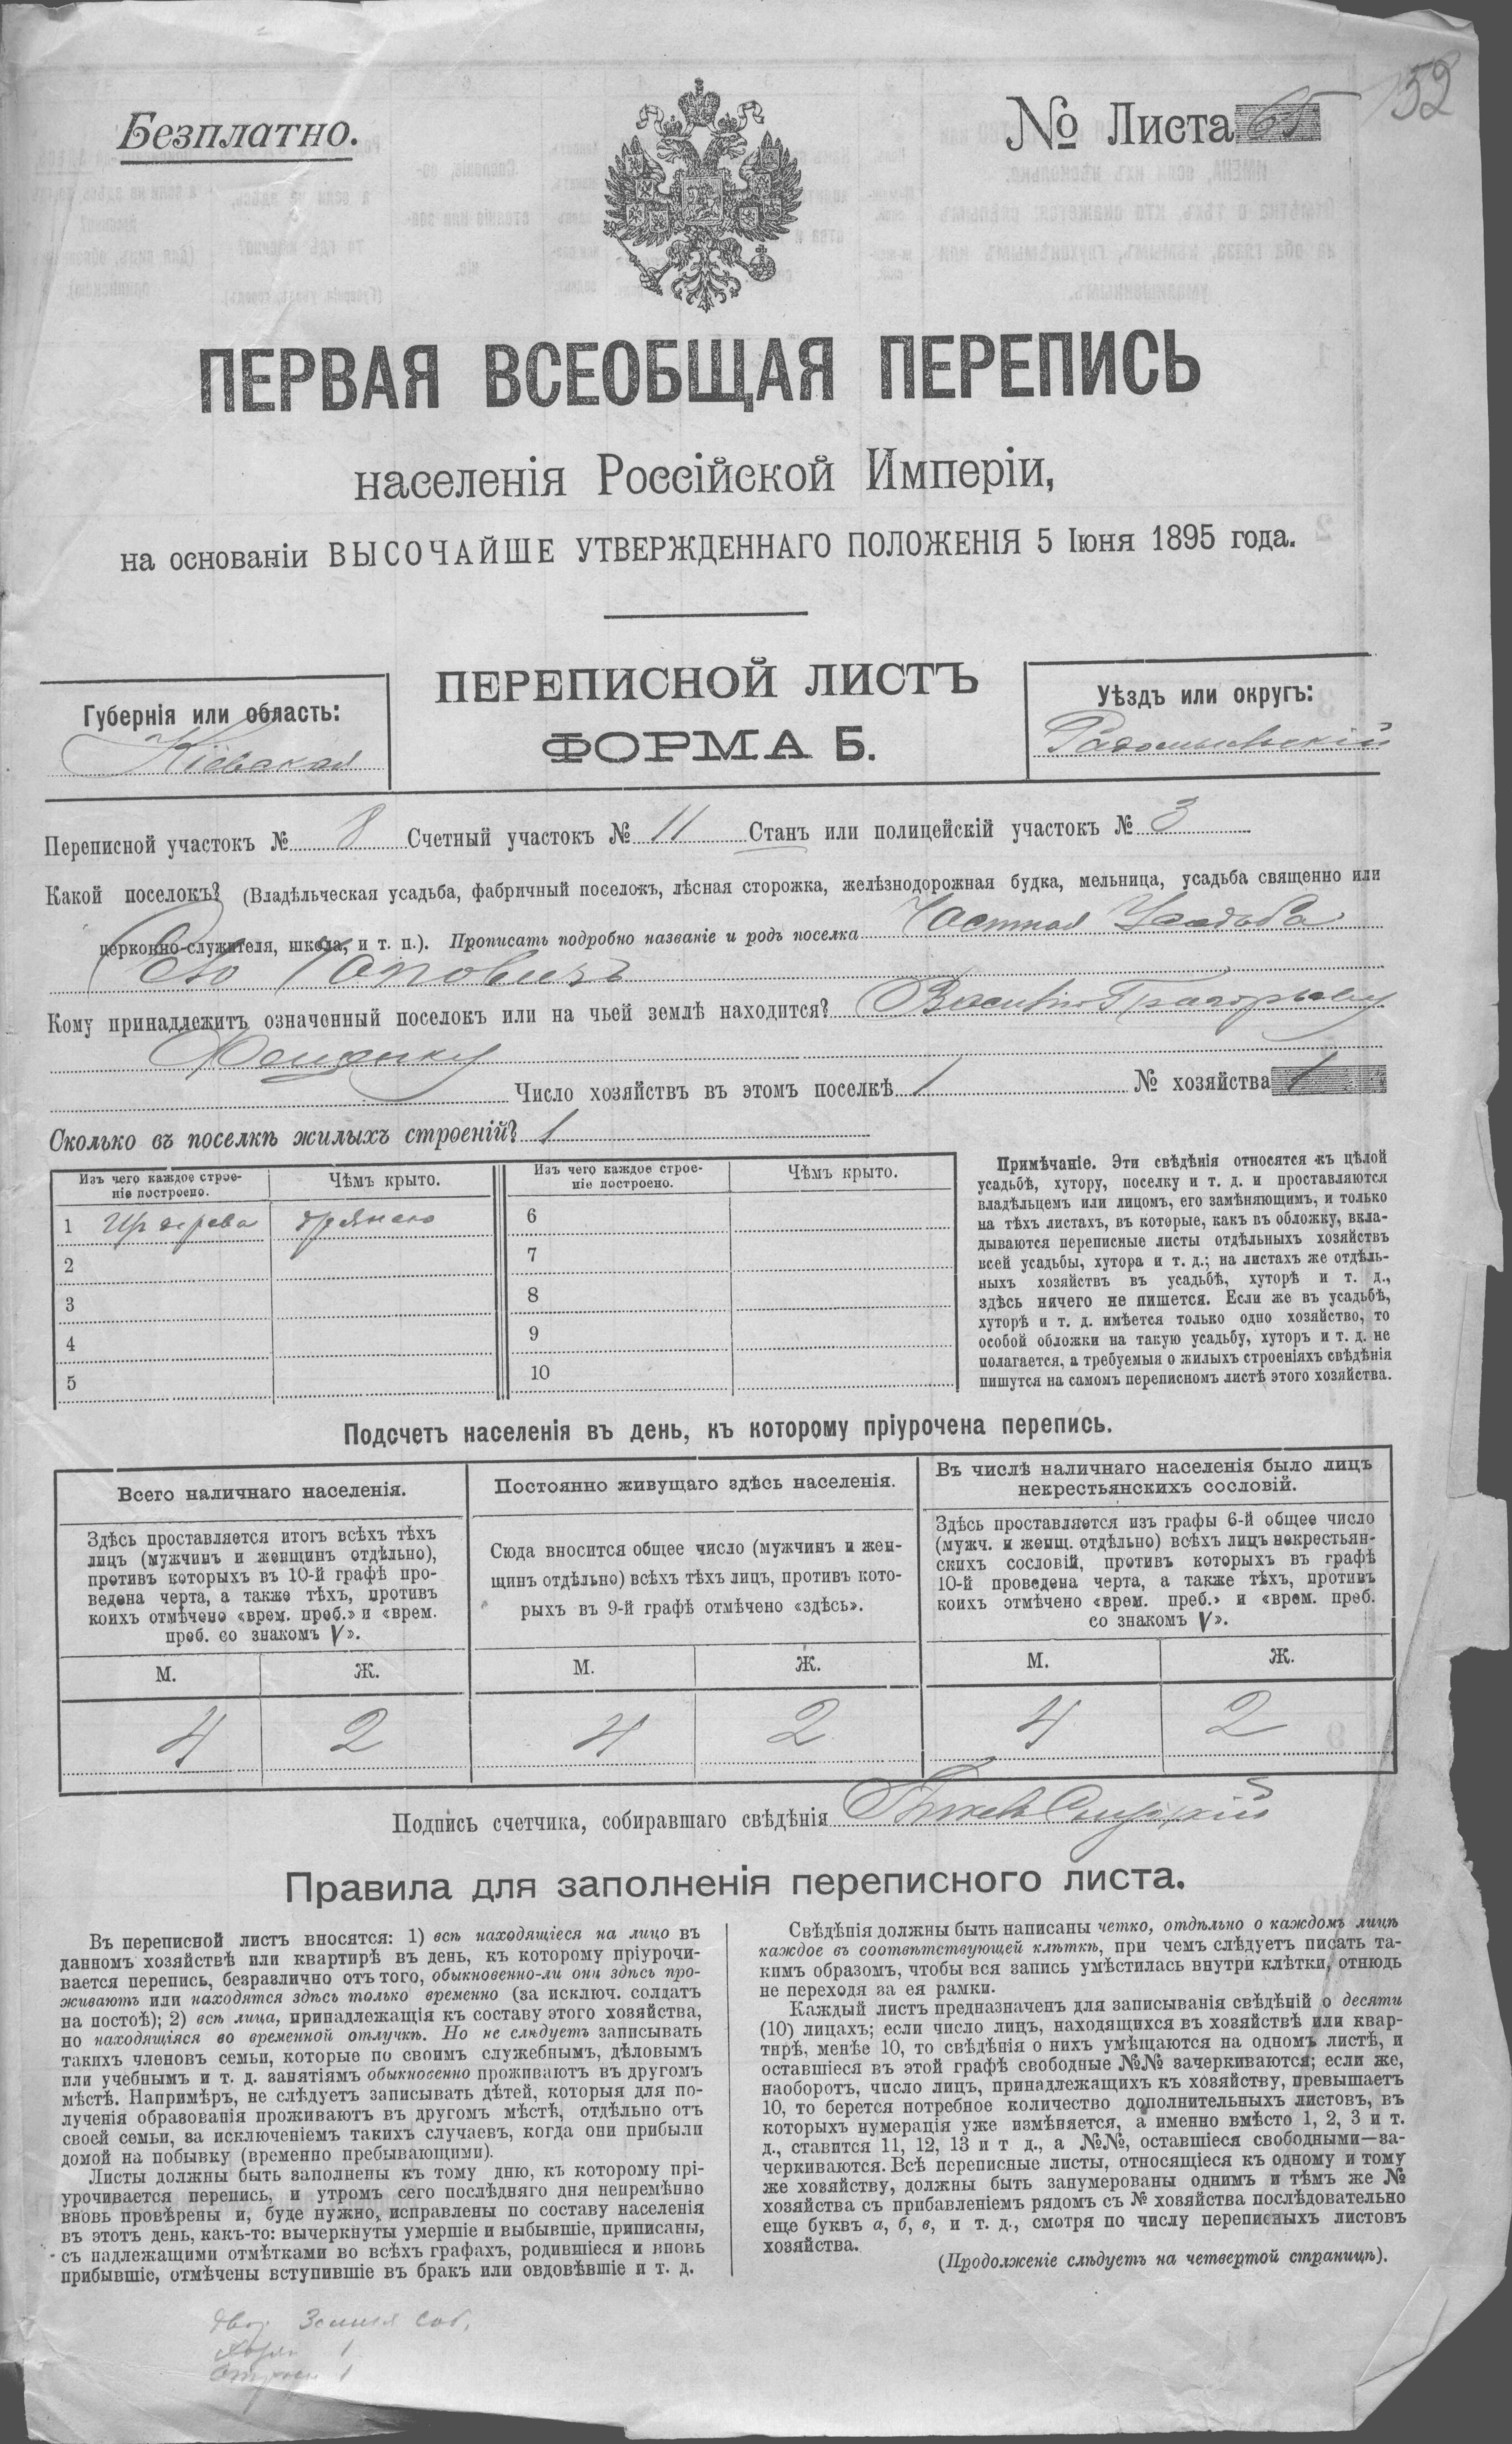 152
Безплатно.
№ Листа 65
ПЕРВАЯ ВСЕОБЩАЯ ПЕРЕПИСЬ
населенія Россійской Имперіи,
на основаніи ВЫСОЧАЙШЕ УТВЕРЖДЕННАГО ПОЛОЖЕНІЯ 5 Іюня 1895 года.
Губернія или область:
Кіевская
ПЕРЕПИСНОЙ ЛИСТЪ
ФОРМА Б.
Уѣздъ или округъ:
Радомысльскій
Переписной участокъ № 8 Счетный участокъ № 11 Станъ или полицейскій участокъ № 3
Какой поселокъ? (Владѣльческая усадьба, фабричный поселокъ, лѣсная сторожка, желѣзнодорожная будка, мельница, усадьба священно или
церковно-служителя, школа, и т. п.). Прописать подробно названіе и родъ поселка Частная Усадьба
Кому принадлежитъ означенный поселокъ или на чьей землѣ находится? Василію Григорьеву
Число хозяйствъ въ этомъ поселкѣ 1 № хозяйства 1
Сколько въ поселкѣ жилыхъ строеній? 1
Изъ чего каждое строе-
ніе построено.
Чѣмъ крыто.
Изъ чего каждое строе-
ніе построено.
Чѣмъ крыто.
1 Изъ дерева
6
2
7
3
8
4
9
5
10
Примѣчаніе. Эти свѣдѣнія относятся къ цѣлой
усадьбѣ, хутору, поселку и т. д. и проставляются
владѣльцемъ или лицомъ, его замѣняющимъ, и только
на тѣхъ листахъ, въ которые, какъ въ обложку, вкла-
дываются переписные листы отдѣльныхъ хозяйствъ
всей усадьбы, хутора и т. д.; на листахъ же отдѣль-
ныхъ хозяйствъ въ усадьбѣ, хуторѣ и т. д.,
здѣсь ничего не пишется. Если же въ усадьбѣ,
хуторѣ и т. д. имѣется только одно хозяйство, то
особой обложки на такую усадьбу, хуторъ и т. д. не
полагается, а требуемыя о жилыхъ строеніяхъ свѣдѣнія
пишутся на самомъ переписномъ листѣ этого хозяйства.
Подсчетъ населенія въ день, къ которому пріурочена перепись.
Всего наличнаго населенія.
Здѣсь проставляется итогъ всѣхъ тѣхъ
лицъ (мужчинъ и женщинъ отдѣльно),
противъ которыхъ въ 10-й графѣ про-
ведена черта, а также тѣхъ, противъ
коихъ отмѣчено «врем. преб.» и «врем.
преб. со знакомъ V».
М. Ж.
4 2
Постоянно живущаго здѣсь населенія.
Сюда вносится общее число (мужчинъ и жен-
щинъ отдѣльно) всѣхъ тѣхъ лицъ, противъ кото-
рыхъ въ 9-й графѣ отмѣчено «здѣсь».
М. Ж.
4 2
Въ числѣ наличнаго населенія было лицъ
некрестьянскихъ сословій.
Здѣсь проставляется изъ графы 6-й общее число
(мужч. и женщ. отдѣльно) всѣхъ лицъ некрестьян-
скихъ сословій, противъ которыхъ въ графѣ
10-й проведена черта, а также тѣхъ, противъ
коихъ отмѣчено «врем. преб.» и «врем. преб.
со знакомъ V».
М. Ж.
4 2
Подпись счетчика, собиравшаго свѣдѣнія
Правила для заполненія переписного листа.
Въ переписной листъ вносятся: 1) всѣ находящіеся на лицо въ
данномъ хозяйствѣ или квартирѣ въ день, къ которому пріурочи-
вается перепись, безразлично отъ того, обыкновенно-ли они здѣсь про-
живаютъ или находятся здѣсь только временно (за исключ. солдатъ
на постоѣ); 2) всѣ лица, принадлежащія къ составу этого хозяйства,
но находящіяся во временной отлучкѣ. Но не слѣдуетъ записывать
такихъ членовъ семьи, которые по своимъ служебнымъ, дѣловымъ
или учебнымъ и т. д. занятіямъ обыкновенно проживаютъ въ другомъ
мѣстѣ. Напримѣръ, не слѣдуетъ записывать дѣтей, которыя для по-
лученія образованія проживаютъ въ другомъ мѣстѣ, отдѣльно отъ
своей семьи, за исключеніемъ такихъ случаевъ, когда они прибыли
домой на побывку (временно пребывающими).
Листы должны быть заполнены къ тому дню, къ которому прі-
урочивается перепись, и утромъ сего послѣдняго дня непремѣнно
вновь провѣрены и, буде нужно, исправлены по составу населенія
въ этотъ день, какъ-то: вычеркнуты умершіе и выбывшіе, приписаны,
съ надлежащими отмѣтками во всѣхъ графахъ, родившіеся и вновь
прибывшіе, отмѣчены вступившіе въ бракъ или овдовѣвшіе и т. д.
Свѣдѣнія должны быть написаны четко, отдѣльно о каждомъ лицѣ
каждое въ соотвѣтствующей клѣткѣ, при чемъ слѣдуетъ писать та-
кимъ образомъ, чтобы вся запись умѣстилась внутри клѣтки, отнюдь
не переходя за ея рамки.
Каждый листъ предназначенъ для записыванія свѣдѣній о десяти
(10) лицахъ; если число лицъ, находящихся въ хозяйствѣ или квар-
тирѣ, менѣе 10, то свѣдѣнія о нихъ умѣщаются на одномъ листѣ, и
оставшіеся въ этой графѣ свободные №№ зачеркиваются; если же,
наоборотъ, число лицъ, принадлежащихъ къ хозяйству, превышаетъ
10, то берется потребное количество дополнительныхъ листовъ, въ
которыхъ нумерація уже измѣняется, а именно вмѣсто 1, 2, 3 и т.
д., ставится 11, 12, 13 и т д., а №№, оставшіеся свободными—за-
черкиваются. Всѣ переписные листы, относящіеся къ одному и тому
же хозяйству, должны быть занумерованы однимъ и тѣмъ же №
хозяйства съ прибавленіемъ рядомъ съ № хозяйства послѣдовательно
еще буквъ а, б, в, и т. д., смотря по числу переписныхъ листовъ
хозяйства.
(Продолженіе слѣдуетъ на четвертой страницѣ).